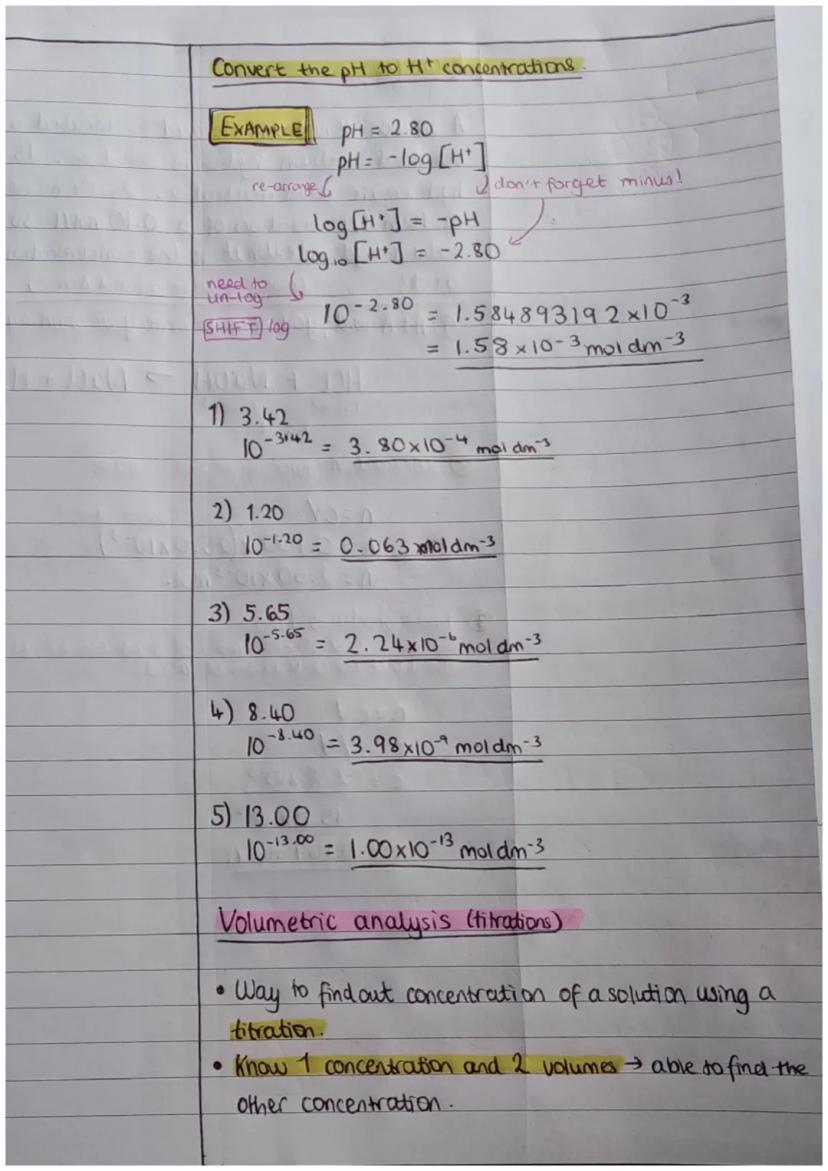 Convert the pH to H⁺ concentrations.
EXAMPLE pH = 2.80
pH = -log[H⁺]
re-arrange don't forget minus!
log[H⁺] = -pH
log₁₀[H⁺] = -2.80
need to
un-log
SHIFT log
10⁻²·⁸⁰ = 1.584893192×10⁻³
= 1.58×10⁻³ mol dm⁻³
1) 3.42
10⁻³·⁴² = 3.80×10⁻⁴ mol dm⁻³
2) 1.20
10⁻¹·²⁰ = 0.063 mol dm⁻³
3) 5.65
10⁻⁵·⁶⁵ = 2.24×10⁻⁶ mol dm⁻³
4) 8.40
10⁻⁸·⁴⁰ = 3.98×10⁻⁹ mol dm⁻³
5) 13.00
10⁻¹³·⁰⁰ = 1.00×10⁻¹³ mol dm⁻³
Volumetric analysis (titrations)
• Way to find out concentration of a solution using a
titration.
• Know 1 concentration and 2 volumes → able to find the
other concentration.